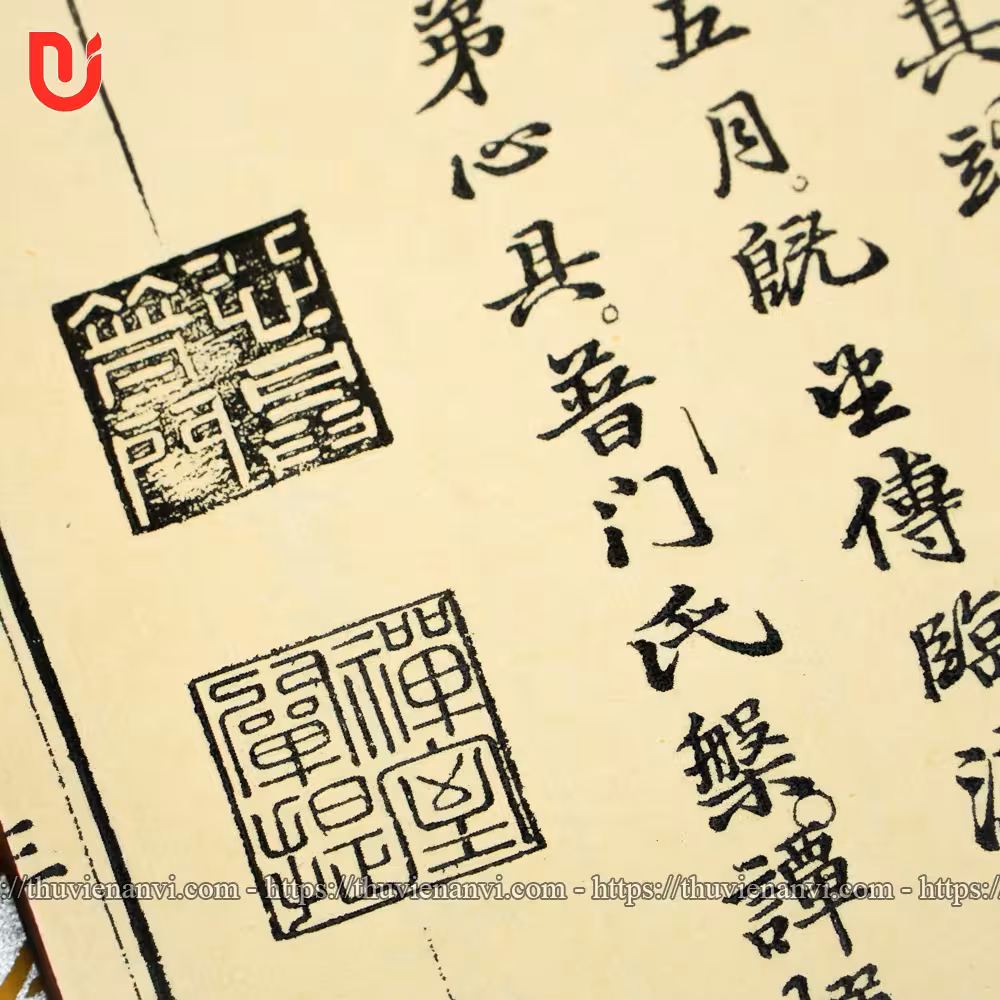 五月。既坐傳臨
第心具。普门氏槃。譚
普門
禪室單提
三
https://thuvienanvi.com - https://thuvienanvi.com - https://thuvienanvi.com - https